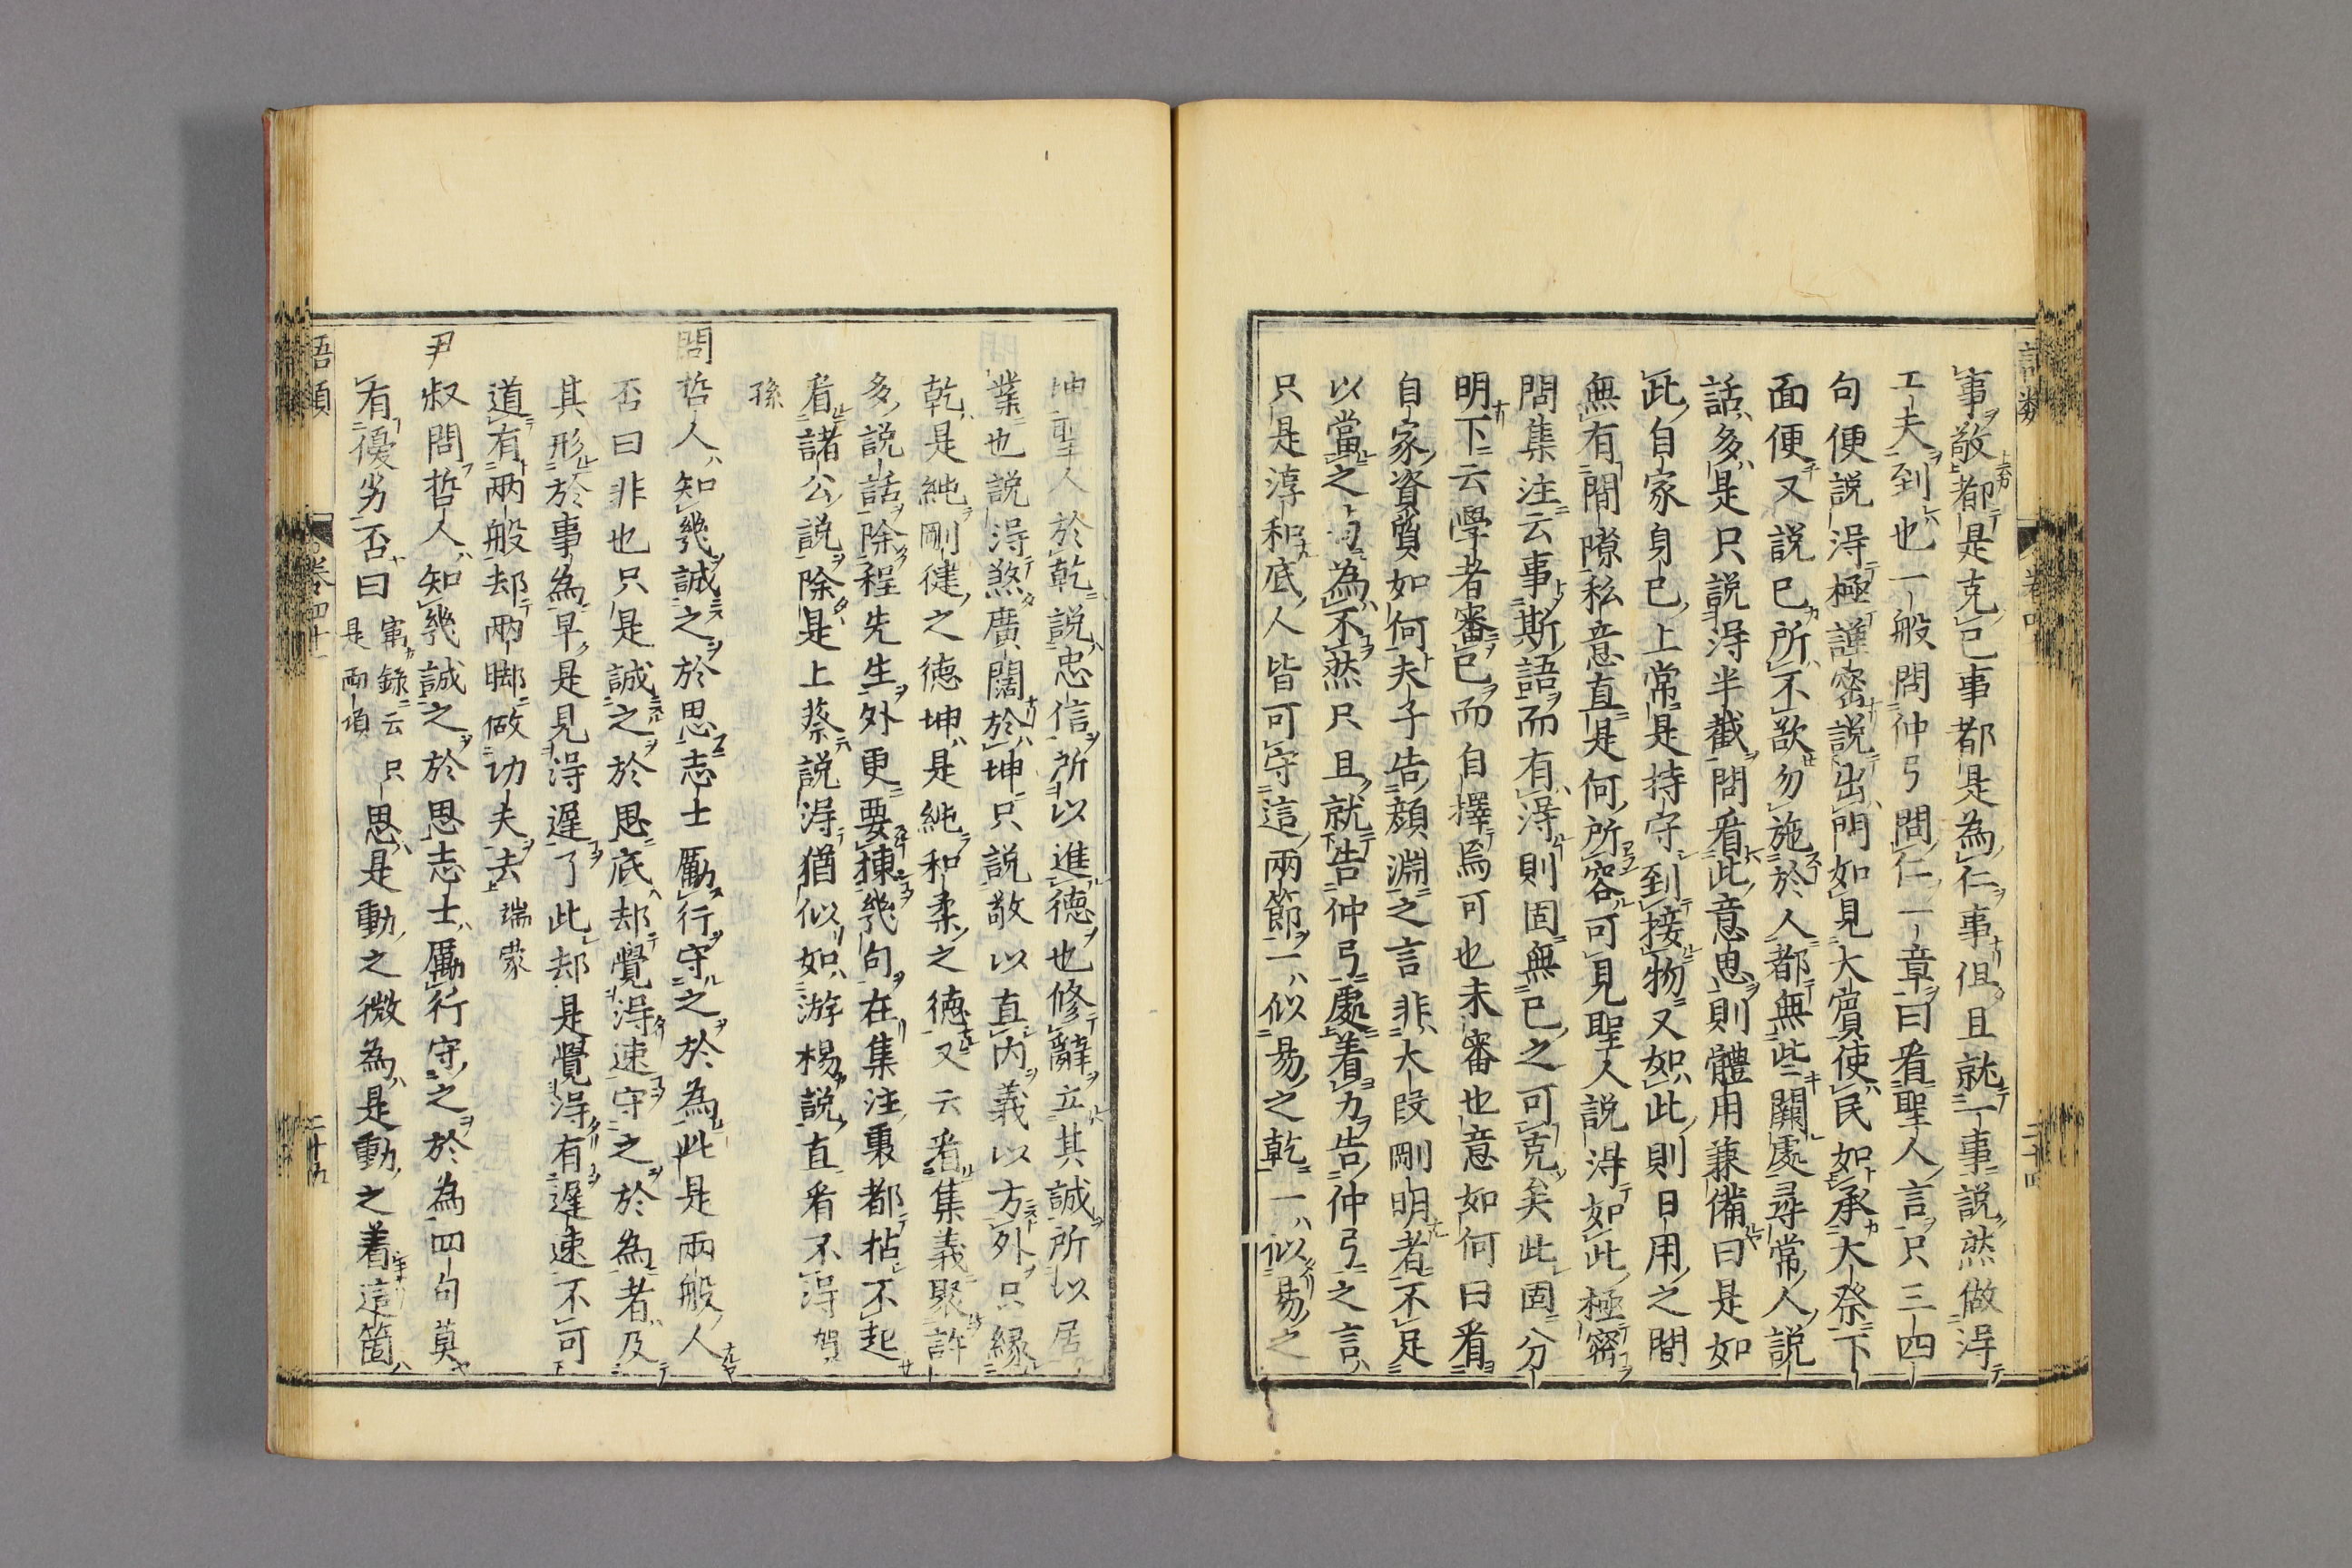 事敬都是克己事都是為仁事但且就一事説然做得
工夫到也一般問仲弓問仁一章曰看聖人言只三四
句便説得極謹密説出門如見大賓使民如承大祭下
面便又説己所不欲勿施於人都無些闕處尋常人説
話多是只説得半截問看此意思則體用兼備曰是如
此自家身己上常是持守到接物又如此則日用之間
無有間隙私意直是何所容可見聖人説得如此極密
問集注云事斯語而有得則固無己之可克矣此固分
明下云學者審己而自擇焉可也未審此意如何曰看
自家資質如何夫子告顔淵之言非大段剛明者不足
以當之為不然只且就告仲弓處着力告仲弓之言
只是淳和底人皆可守這兩節一似易之乾一似易之
坤聖人於乾説忠信所以進德也修辭立其誠所以居
業也説得煞廣闊於坤只説敬以直内義以方外只緣
乾是純剛健之德坤是純和柔之德又云看集義聚許
多説話除程先生外更要揀幾句在集注裏都拈不起
看諸公説除是上蔡説得猶似如游楊説直看不得賀
孫
問哲人知幾誠之於思志士勵行守之於為此是兩般人
否曰非也只是誠之於思底却覺得速守之於為者及
其形於事為早是見得遲了此却是覺得有遲速不可
道有兩般却兩脚做功夫去 端蒙
尹叔問哲人知幾誠之於思志士勵行守之於為四句莫
有優劣否曰 㝢錄云是兩項 只思是動之微為是動之着這箇
語類 卷四十一 二十五